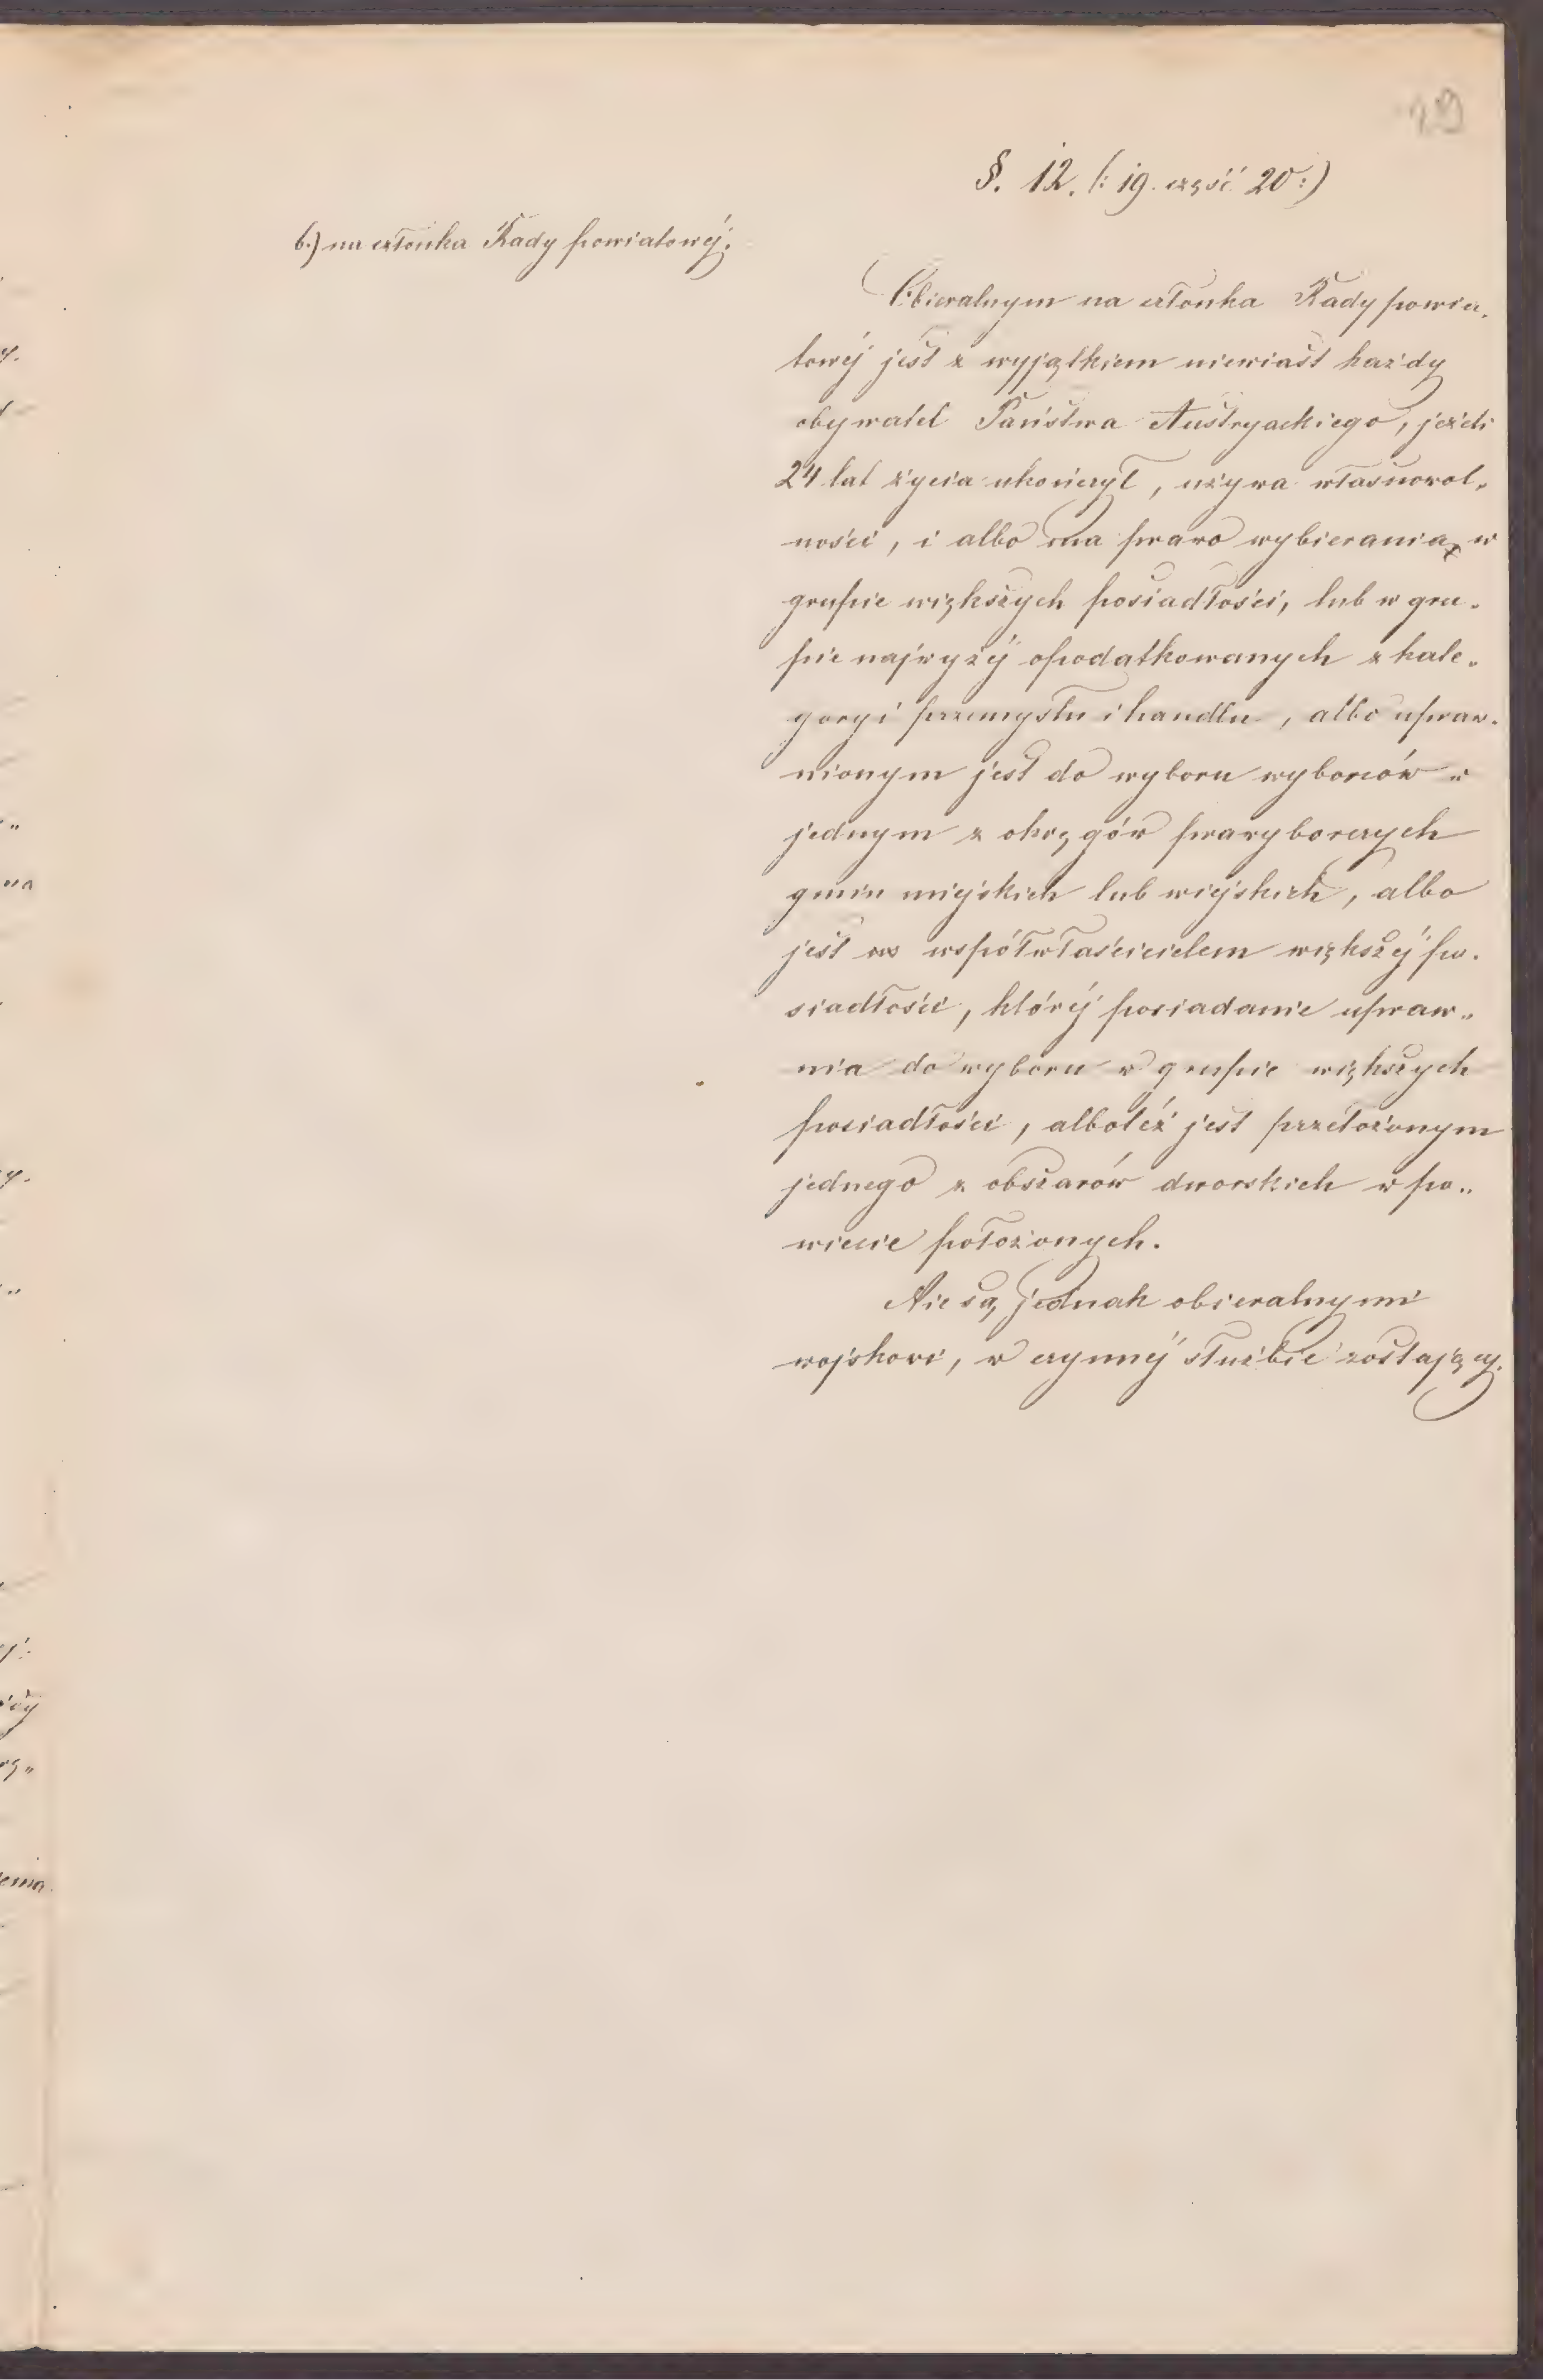 19
§. 12. (: 19. część 20 :)
b.) na członka Rady powiatowéj.
Obieralnym na członka Rady powia„
towéj jest z wyjątkiem niewiast każdy
obywatel Państwa Austryackiego, jeżeli
24 lat życia ukończył, używa własnowol„
ności, i albo ma prawo wybierania w
grupie większych posiadłości, lub w gru„
pie najwyżéj opodatkowanych z kate„
goryi przemysłu i handlu, albo upraw„
nionym jest do wyboru wyborców w
jednym z okręgów prawyborczych
gmin miejskich lub wiejskich, albo
jest współwłaścicielem większéj po„
siadłości, któréj posiadanie upraw„
nia do wyboru w grupie większych
posiadłości, albo też jest przełożonym
jednego z obszarów dworskich w po„
wiecie położonych.
Nie są jednak obieralnymi
wojskowi, w czynnéj służbie zostający.